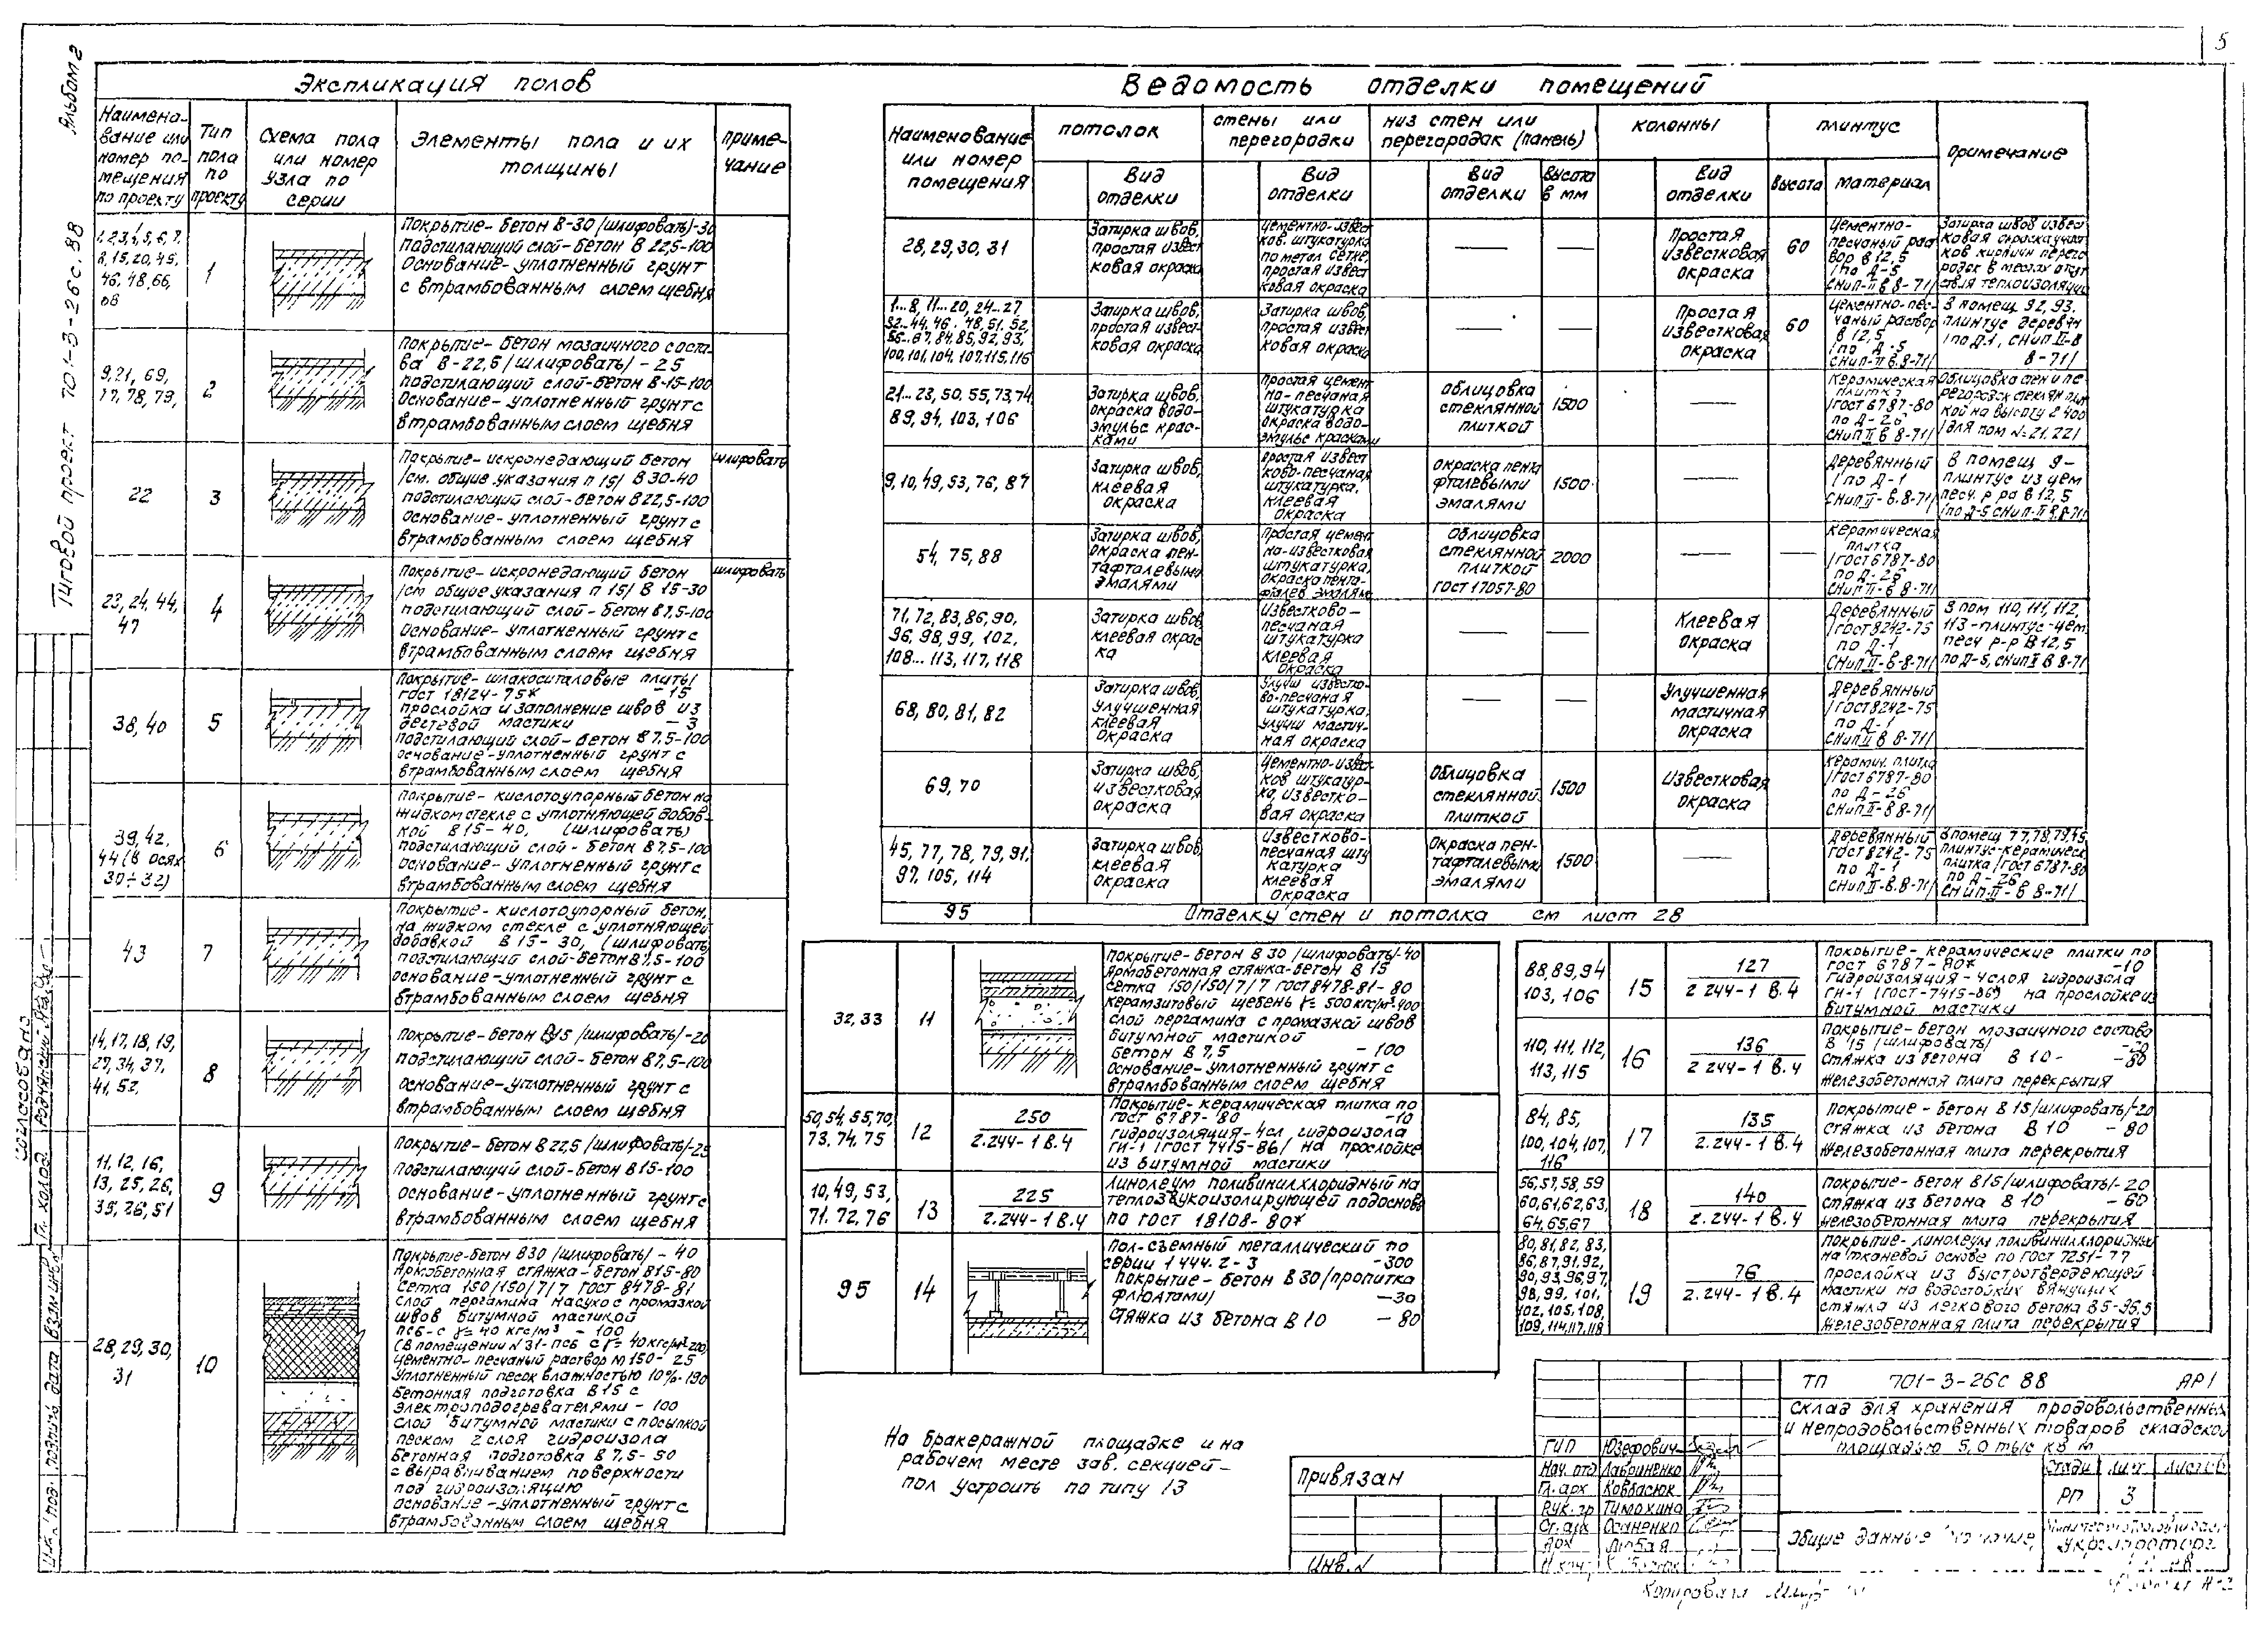 5
Альбом 2
Типовой проект 701-3-26с.88
Экспликация полов
Наимено-
вание или
номер по-
мещения
по проекту
Тип
пола
по
проекту
Схема пола
или номер
узла по
серии
Элементы пола и их
толщины
Приме-
чание
1,2,3,4,5,6,7,
8,15,20,45,
46,48,66,
1
Покрытие-бетон В-30 /шлифовать/-30
подстилающий слой-бетон В 22,5-100
Основание-уплотненный грунт
с втрамбованным слоем щебня
9,21,69,
77,78,79,
2
Покрытие-бетон мозаичного соста-
ва В-22,5 /шлифовать/-25
подстилающий слой-бетон В-15-100
Основание-уплотненный грунт с
втрамбованным слоем щебня
22
3
Покрытие-искронедающий бетон
/см. общие указания п 15/ В 30-40
подстилающий слой-бетон В 22,5-100
Основание-уплотненный грунт с
втрамбованным слоем щебня
шлифовать
23,24,44,
47
4
Покрытие-искронедающий бетон
/см общие указания п 15/ В 15-30
подстилающий слой-бетон В 7,5-100
Основание-уплотненный грунт с
втрамбованным слоем щебня
шлифовать
38,40
5
Покрытие-шлакоситалловые плиты
ГОСТ 18124-75* -15
прослойка и заполнение швов из
дегтевой мастики -3
подстилающий слой-бетон В 7,5-100
Основание-уплотненный грунт с
втрамбованным слоем щебня
39,42,
44 (в осях
30÷32)
6
Покрытие-кислотоупорный бетон на
жидком стекле с уплотняющей добав-
кой В 15-40, (шлифовать)
подстилающий слой-бетон В 7,5-100
Основание-уплотненный грунт с
втрамбованным слоем щебня
43
7
Покрытие-кислотоупорный бетон,
на жидком стекле с уплотняющей
добавкой В 15-30, (шлифовать)
подстилающий слой-бетон В 7,5-100
Основание-уплотненный грунт с
втрамбованным слоем щебня
14,17,18,19,
27,34,37,
41,52,
8
Покрытие-бетон В15 /шлифовать/-20
подстилающий слой-бетон В 7,5-100
Основание-уплотненный грунт с
втрамбованным слоем щебня
11,12,16,
13,25,26,
35,36,51
9
Покрытие-бетон В 22,5 /шлифовать/-25
подстилающий слой-бетон В 15-100
Основание-уплотненный грунт с
втрамбованным слоем щебня
28,29,30,
31
10
Покрытие-бетон В30 /шлифовать/-40
Армобетонная стяжка-бетон В15-80
Сетка 150/150/7/7 ГОСТ 8478-81
Слой пергамина насухо с промазкой
швов битумной мастикой
ПСБ-С γ=40 кгс/м³ -100
(в помещении N 31-ПСБ С γ=40кгс/м³-200)
Цементно-песчаный раствор М 150-25
Уплотненный песок влажностью 10%-190
Бетонная подготовка В 15 с
электроподогревателями -100
Слой битумной мастики с посыпкой
песком 2 слоя гидроизола
Бетонная подготовка В 7,5-50
с выравниванием поверхности
под гидроизоляцию
Основание-уплотненный грунт с
втрамбованным слоем щебня
Ведомость отделки помещений
Наименование
или номер
помещения
Потолок
Стены или
перегородки
Низ стен или
перегородок (панель)
Колонны
Плинтус
Примечание
Вид
отделки
Вид
отделки
Вид
отделки
Высота
в мм
Вид
отделки
Высота
Материал
28,29,30,31
Затирка швов,
простая извест
ковая окраска
Цементно-извест
ков. штукатурка
по метал сетке,
простая извест
ковая окраска
— —
Простая
известковая
окраска
60
Цементно-
песчаный раст
вор В 12,5
/по Д-5
СНиП-II В 8-71/
Затирка швов извест
ковая окраска участ
ков кирпичн перего
родок в местах отсут
ствия теплоизоляции
1...8, 11...20, 24...27
32...44,46, 48,51,52,
56...67,84,85,92,93,
100,101,104,107,115,116
Затирка швов,
простая извест-
ковая окраска
Затирка швов,
простая извест
ковая окраска
— —
Простая
известковая
окраска
60
Цементно-пес-
чаный раствор
В 12,5
/по Д-5
СНиП-II В.8-71/
В помещ 92,93.
плинтус деревян
/по Д.1, СНиП II-В
8-71/
21...23,50,55,73,74
89,94,103,106
Затирка швов,
окраска водо-
эмульс крас-
ками
Простая цемент
но-песчаная
штукатурка
окраска водо-
эмульс красками
Облицовка
стеклянной
плиткой
1500
—
Керамическая
плитка
/ГОСТ 6787-80
по Д-26
СНиП II В 8-71/
Облицовка стен и пе-
регородок стеклян плит
кой на высоту 2400
/для пом N=21,22/
9,10,49,53,76,87
Затирка швов,
клеевая
окраска
Простая извест
ково-песчаная
штукатурка,
клеевая
окраска
Окраска пента
фталевыми
эмалями
1500
—
Деревянный
/по Д-1
СНиП II-В.8-71/
В помещ 9-
плинтус из цем
песч. р ра В 12,5
/по Д-5 СНиП-II В.8-71/
54,75,88
Затирка швов,
окраска пен-
тафталевыми
эмалями
Простая цемент
но-известковая
штукатурка,
окраска пента-
фталев эмалям
Облицовка
стеклянной
плиткой
ГОСТ 17057-80
2000
— —
Керамическая
плитка
/ГОСТ 6787-80
по Д-26
СНиП II В 8-71/
71,72,83,86,90,
96,98,99,102,
108...113,117,118
Затирка швов
клеевая окрас
ка
Известково-
песчаная
штукатурка
клеевая
окраска
— —
Клеевая
окраска
Деревянный
/ГОСТ 8242-75
по Д-1
СНиП II-В-8-71/
В пом 110,111,112,
113-плинтус-цем.
песч р-р В 12,5
по Д-5, СНиП II В 8-71/
68,80,81,82
Затирка швов
улучшенная
клеевая
окраска
Улучш известко-
во-песчаная
штукатурка,
улучш мастич-
ная окраска
— —
Улучшенная
мастичная
окраска
Деревянный
/ГОСТ 8242-75
по Д-1
СНиП II В 8-71/
69,70
Затирка швов,
известковая
окраска
Цементно-извес
ков штукатур-
ка, известко-
вая окраска
Облицовка
стеклянной
плиткой
1500
Известковая
окраска
Керамич. плитка
/ГОСТ 6787-80
по Д-26
СНиП II-В 8-71/
45,77,78,79,91,
97,105,114
Затирка швов
клеевая
окраска
Известково-
песчаная шту
катурка
клеевая
окраска
Окраска пен-
тафталевыми
эмалями
1500
—
Деревянный
ГОСТ 8242-75
по Д-1
СНиП II-В.8-71/
В помещ 77,78,79,45
плинтус-керамическ
плитка /ГОСТ 6787-80
по Д-26
СНиП-II-В 8-71/
95
Отделку стен и потолка см лист 28
32,33
11
Покрытие-бетон В 30 /шлифовать/-40
Армобетонная стяжка-бетон В 15
Сетка 150/150/7/7 ГОСТ 8478-81-80
Керамзитовый щебень γ=500кгс/м³-400
слой пергамина с промазкой швов
битумной мастикой
Бетон В 7,5 -100
Основание-уплотненный грунт с
втрамбованным слоем щебня
50,54,55,70,
73,74,75
12
250
2.244-1 В.4
Покрытие-керамическая плитка по
ГОСТ 6787-80 -10
гидроизоляция-4сл гидроизола
ГИ-1 /ГОСТ 7415-86/ на прослойке
из битумной мастики
10,49,53,
71,72,76
13
225
2.244-1 В.4
Линолеум поливинилхлоридный на
теплозвукоизолирующей подоснове
по ГОСТ 18108-80*
95
14
Пол-съемный металлический по
серии 1 444.2-3 -300
Покрытие-бетон В 30 /пропитка
флюатами/ -30
Стяжка из бетона В 10 -80
88,89,94
103,106
15
127
2 244-1 В.4
Покрытие-керамические плитки по
ГОСТ 6787-80* -10
Гидроизоляция-4слоя гидроизола
ГИ-1 (ГОСТ-7415-86) на прослойке из
битумной мастики
110,111,112,
113,115
16
136
2 244-1 В.4
Покрытие-бетон мозаичного состава
В 15 /шлифовать/ -20
Стяжка из бетона В 10- -80
Железобетонная плита перекрытия
84,85,
100,104,107,
116
17
135
2.244-1 В.4
Покрытие-бетон В 15 /шлифовать/-20
Стяжка из бетона В 10 -80
Железобетонная плита перекрытия
56,57,58,59
60,61,62,63,
64,65,67
18
140
2.244-1 В.4
Покрытие-бетон В15 /шлифовать/-20
стяжка из бетона В 10 -60
Железобетонная плита перекрытия
80,81,82,83,
86,87,91,92,
90,93,96,97,
98,99,101,
102,105,108,
109,114,117,118
19
76
2.244-1 В.4
Покрытие-линолеум поливинилхлоридный
на тканевой основе по ГОСТ 7251-77
прослойка из быстротвердеющей
мастики на водостойких вяжущих
стяжка из легкового бетона В5-96,5
Железобетонная плита перекрытия
На бракеражной площадке и на
рабочем месте зав. секцией-
пол устроить по типу 13
Привязан
Инв. N
ТП 701-3-26С 88 АР1
Склад для хранения продовольственных
и непродовольственных товаров складской
площадью 5,0 тыс кв м
ГИП Юзефович
Нач. отд Лавриненко
Гл. арх Ковбасюк
Рук. гр Тимохина
Ст. арх Осаненко
Арх
Стади
Лист
Листов
РП
3
Общие данные
Копировал
Согласовано
Гл. холод.
Взам инв N
Подпись дата
Инв. N под.